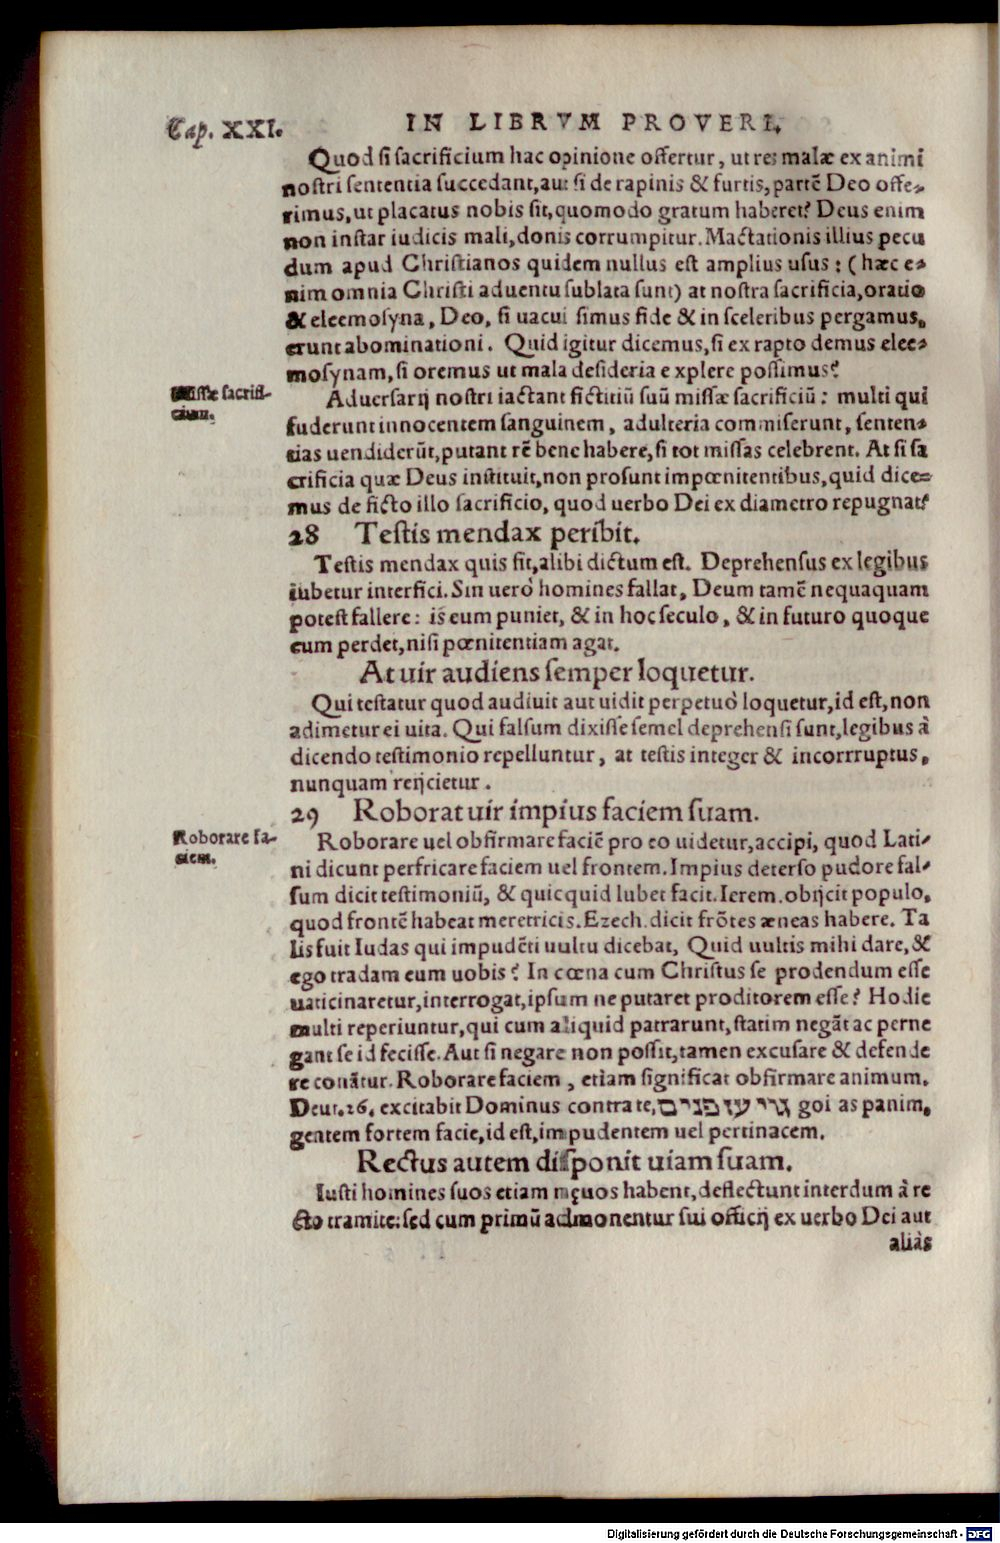 Cap. XXI. IN LIBRVM PROVERI.
Quod si sacrificium hac opinione offertur, ut res malæ ex animi
nostri sententia succedant, aut si de rapinis & furtis, partē Deo offe-
rimus, ut placatus nobis sit, quomodo gratum haberet? Deus enim
non instar iudicis mali, donis corrumpitur. Mactationis illius pecu
dum apud Christianos quidem nullus est amplius usus: (hæc e-
nim omnia Christi aduentu sublata sunt) at nostra sacrificia, oratio
& eleemosyna, Deo, si uacui simus fide & in sceleribus pergamus,
erunt abominationi. Quid igitur dicemus, si ex rapto demus elee-
mosynam, si oremus ut mala desideria explere possimus?
Missæ sacrifi-
cium.
Aduersarij nostri iactant fictitiū suū missæ sacrificiū: multi qui
fuderunt innocentem sanguinem, adulteria commiserunt, senten-
tias uendiderūt, putant rē bene habere, si tot missas celebrent. At si sa
crificia quæ Deus instituit, non prosunt impœnitentibus, quid dice-
mus de ficto illo sacrificio, quod uerbo Dei ex diametro repugnat?
28 Testis mendax peribit.
Testis mendax quis sit, alibi dictum est. Deprehensus ex legibus
iubetur interfici. Sin uerò homines fallat, Deum tamē nequaquam
potest fallere: is eum puniet, & in hoc seculo, & in futuro quoque
eum perdet, nisi pœnitentiam agat.
At uir audiens semper loquetur.
Qui testatur quod audiuit aut uidit perpetuò loquetur, id est, non
adimetur ei uita. Qui falsum dixisse semel deprehensi sunt, legibus à
dicendo testimonio repelluntur, at testis integer & incorrruptus,
nunquam reijcietur.
29 Roborat uir impius faciem suam.
Roborare fa-
ciem.
Roborare uel obfirmare faciē pro eo uidetur, accipi, quod Lati-
ni dicunt perfricare faciem uel frontem. Impius deterso pudore fal-
sum dicit testimoniū, & quicquid lubet facit. Ierem. obijcit populo,
quod frontē habeat meretricis. Ezech. dicit frōtes æneas habere. Ta
lis fuit Iudas qui impudēti uultu dicebat, Quid uultis mihi dare, &
ego tradam eum uobis? In cœna cum Christus se prodendum esse
uaticinaretur, interrogat, ipsum ne putaret proditorem esse? Hodie
multi reperiuntur, qui cum aliquid patrarunt, statim negāt ac perne
gant se id fecisse. Aut si negare non possit, tamen excusare & defende
re conātur. Roborare faciem, etiam significat obfirmare animum.
Deut. 26. excitabit Dominus contra te, גוי עז פנים goi as panim,
gentem fortem facie, id est, impudentem uel pertinacem.
Rectus autem disponit uiam suam.
Iusti homines suos etiam nęuos habent, deflectunt interdum à re
cto tramite: sed cum primū admonentur sui officij ex uerbo Dei aut
aliàs
Digitalisierung gefördert durch die Deutsche Forschungsgemeinschaft - DFG